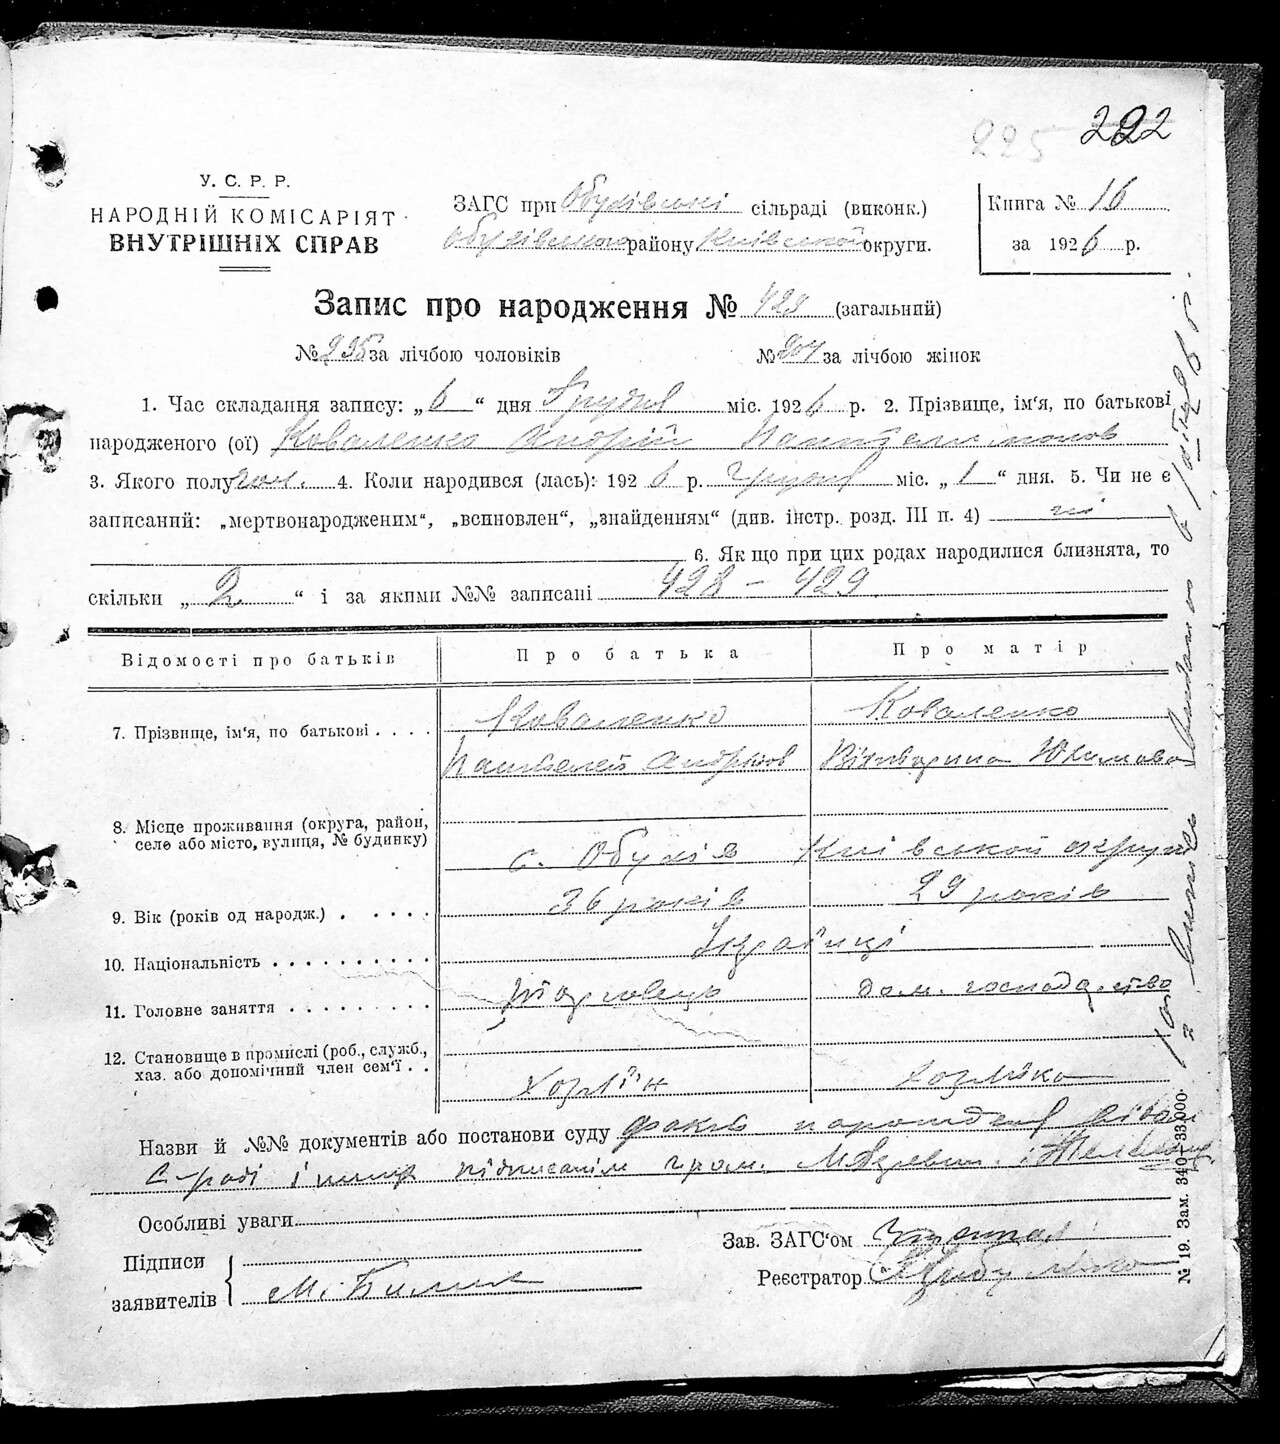 225 222
У. С. Р. Р.
НАРОДНІЙ КОМІСАРІЯТ
ВНУТРІШНІХ СПРАВ
ЗАГС при Обухівські сільраді (виконк.)
Обухівського району Київської округи.
Книга № 16
за 1926 р.
Запис про народження № 429 (загальний)
№ 225 за лічбою чоловіків
№ 204 за лічбою жінок
1. Час складання запису: „6“ дня Грудня міс. 1926 р. 2. Прізвище, ім'я, по батькові
народженого (ої) Коваленко Андрій
3. Якого полу чол. 4. Коли народився (лась): 1926 р. грудня міс. „1“ дня. 5. Чи не є
записаний: „мертвонародженим“, „всиновлен“, „знайденням“ (див. інстр. розд. III п. 4) ні
6. Як що при цих родах народилися близнята, то
скільки „2“ і за якими №№ записані 428 – 429
Відомості про батьків
Про батька
Про матір
7. Прізвище, ім'я, по батькові . . . .
Коваленко
Коваленко
Пантелей Андріїв
Юхимова
8. Місце проживання (округа, район,
село або місто, вулиця, № будинку)
с. Обухів Київської округи
9. Вік (років од народж.) . . . . .
36 років
29 років
10. Національність . . . . . . . . . .
Українці
11. Головне заняття . . . . . . . . .
Торговець
дом. господарство
12. Становище в промислі (роб., служб.,
хаз. або допомічний член сем'ї . .
хозяїн
хозяйка
Назви й №№ документів або постанови суду факт народження
підписаній гром.
Особливі уваги
Підписи
заявителів
М. Билик
Зав. ЗАГС'ом
Реєстратор
№ 19. Зам. 340—33.000.